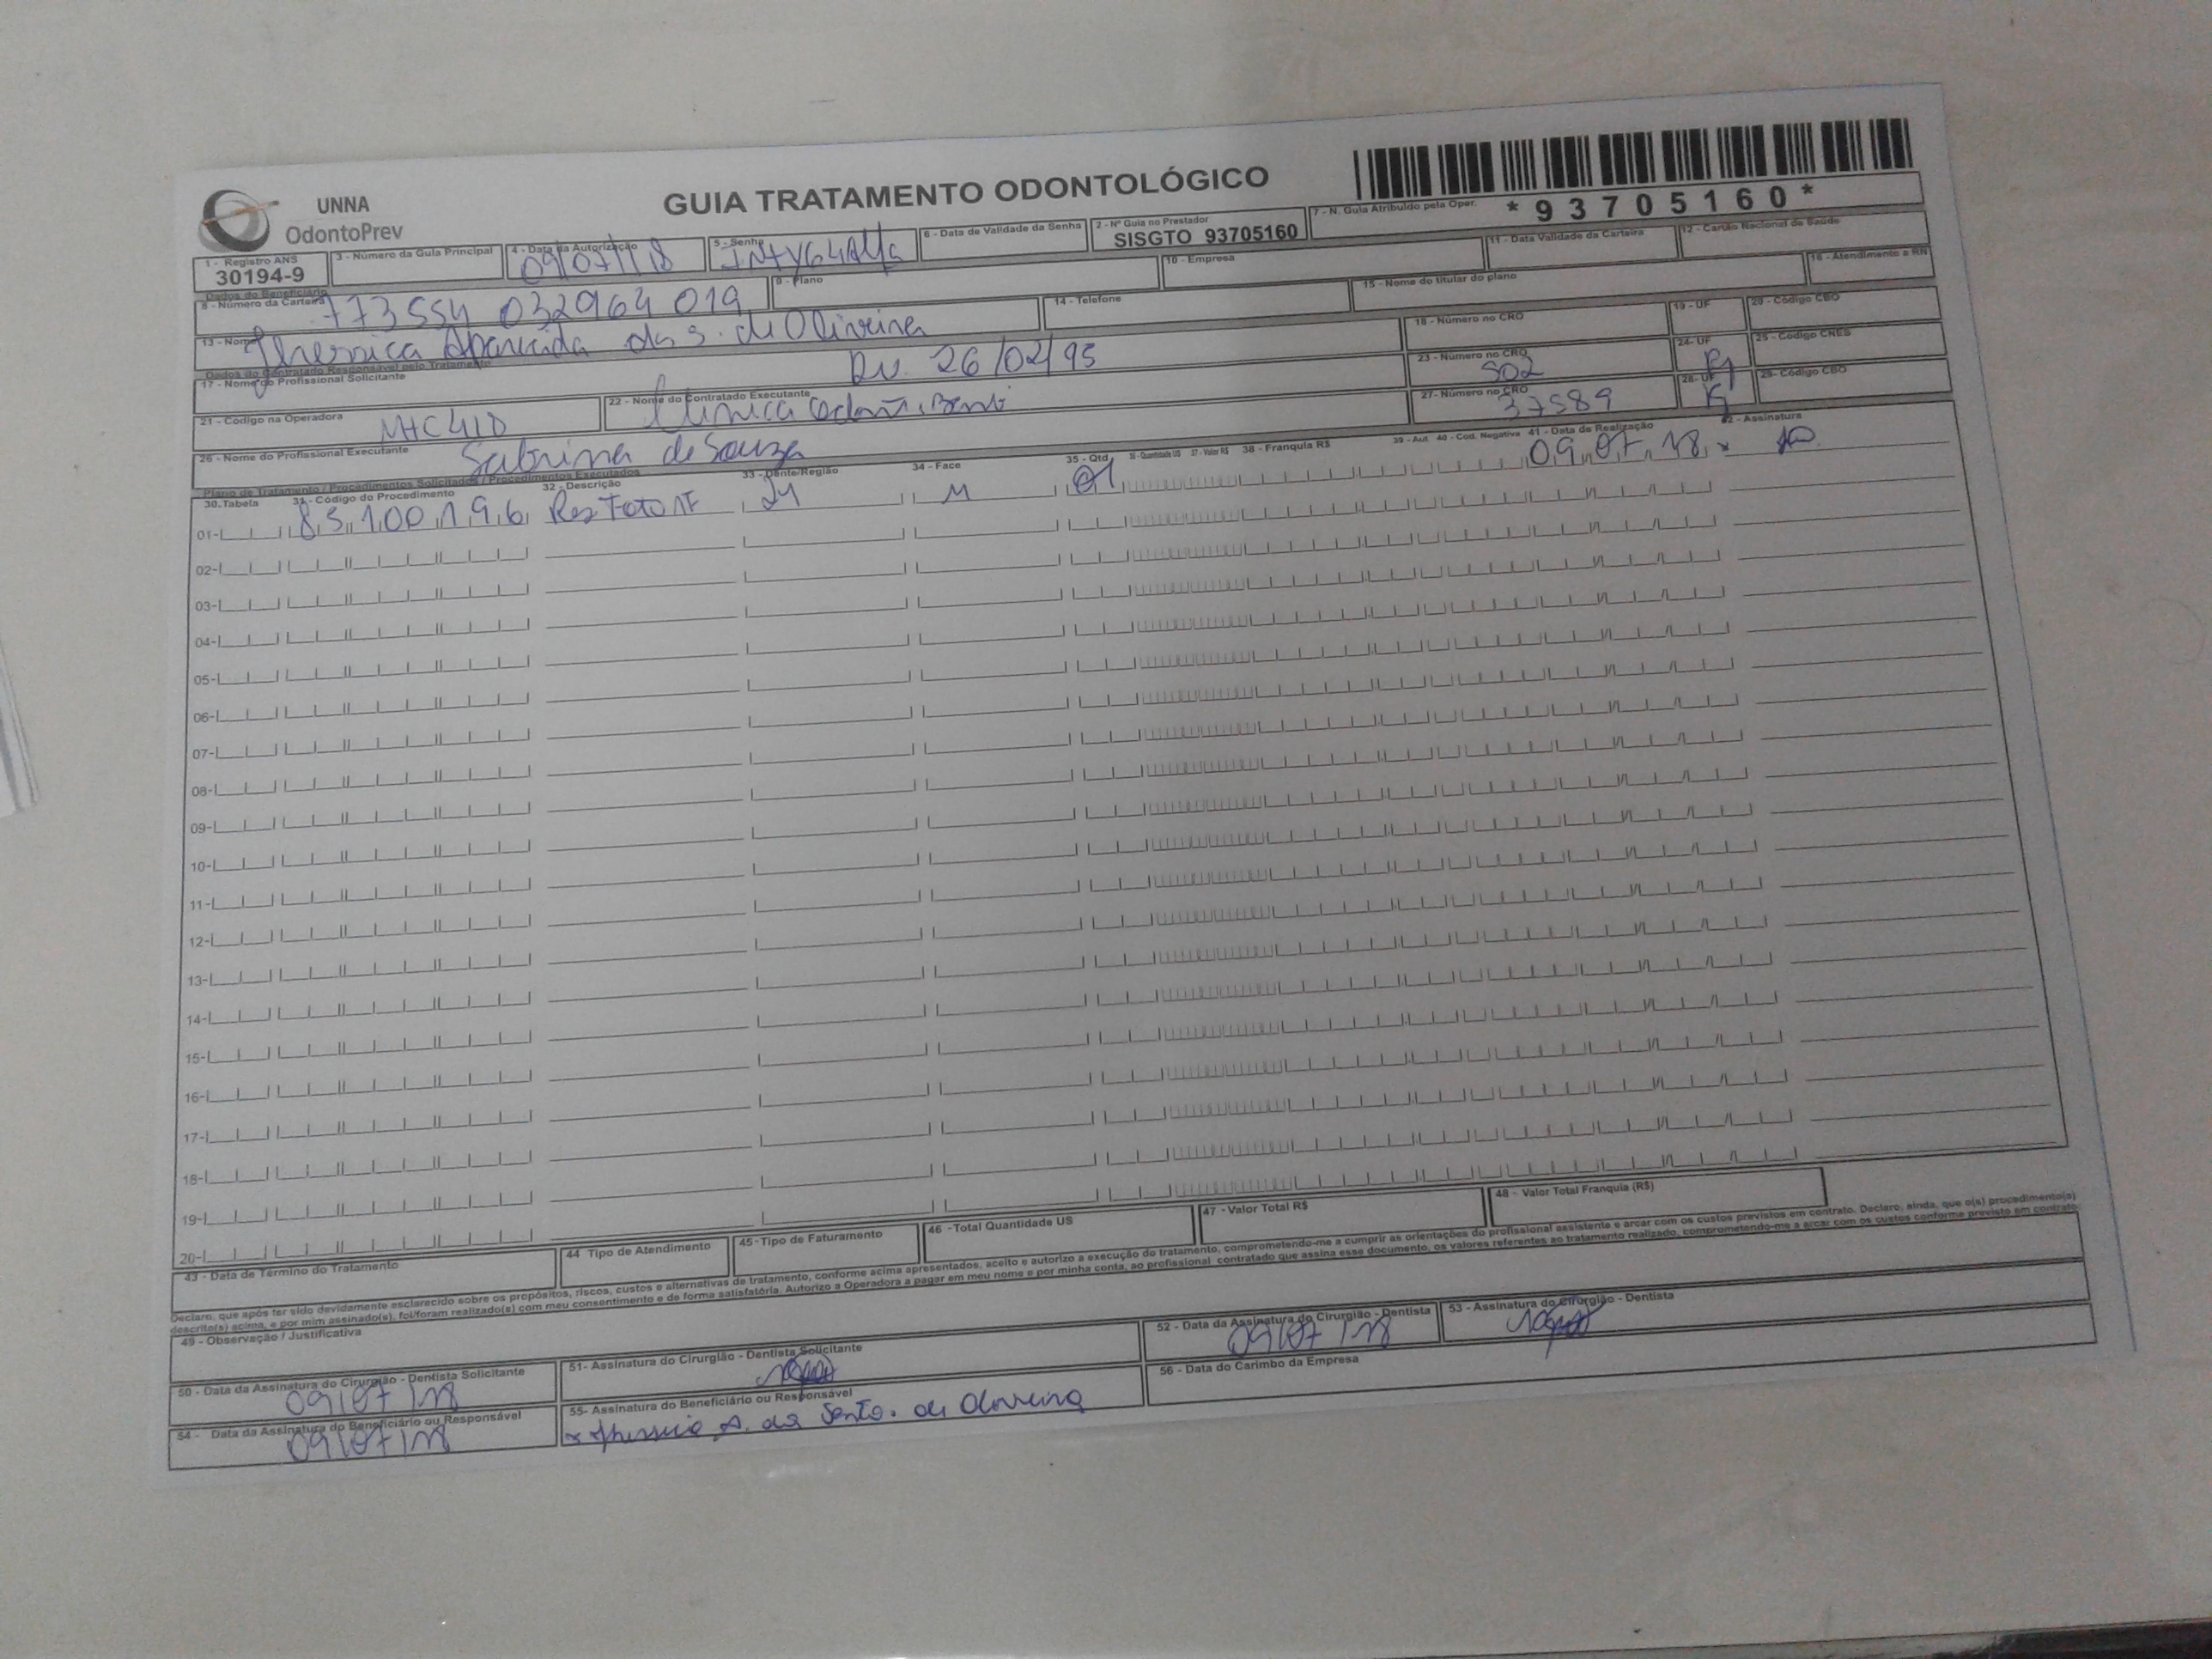 UNNA
OdontoPrev
GUIA TRATAMENTO ODONTOLÓGICO
* 9 3 7 0 5 1 6 0 *
1 - Registro ANS
30194-9
3 - Número da Guia Principal
4 - Data da Autorização
09/07/18
5 - Senha
6 - Data de Validade da Senha
2 - Nº Guia no Prestador
SISGTO 93705160
7 - N. Guia Atribuído pela Oper.
Dados do Beneficiário
8 - Número da Carteira
9 - Plano
10 - Empresa
11 - Data Validade da Carteira
12 - Cartão Nacional de Saúde
13 - Nome
14 - Telefone
15 - Nome do titular do plano
16 - Atendimento a RN
Dados do Contratado Responsável pelo Tratamento
17 - Nome do Profissional Solicitante
26/02/95
18 - Número no CRO
19 - UF
20 - Código CBO
21 - Código na Operadora
22 - Nome do Contratado Executante
23 - Número no CRO
502
24 - UF
25 - Código CNES
26 - Nome do Profissional Executante
Sabrina de Souza
27 - Número no CRO
37589
28 - UF
29 - Código CBO
Plano de Tratamento / Procedimentos Solicitados / Procedimentos Executados
30 - Tabela 31 - Código do Procedimento 32 - Descrição 33 - Dente/Região 34 - Face 35 - Qtd 36 - Quantidade US 37 - Valor R$ 38 - Franquia R$ 39 - Aut 40 - Cod. Negativa 41 - Data de Realização 42 - Assinatura
01- M 01 09/07/18
02-
03-
04-
05-
06-
07-
08-
09-
10-
11-
12-
13-
14-
15-
16-
17-
18-
19-
20-
43 - Data de Término do Tratamento
44 Tipo de Atendimento
45 - Tipo de Faturamento
46 - Total Quantidade US
47 - Valor Total R$
48 - Valor Total Franquia (R$)
Declaro, que após ter sido devidamente esclarecido sobre os propósitos, riscos, custos e alternativas de tratamento, conforme acima apresentados, aceito e autorizo a execução do tratamento, comprometendo-me a cumprir as orientações do profissional assistente e arcar com os custos previstos em contrato. Declaro, ainda, que o(s) procedimento(s)
descrito(s) acima, e por mim assinado(s), foi/foram realizado(s) com meu consentimento e de forma satisfatória. Autorizo a Operadora a pagar em meu nome e por minha conta, ao profissional contratado que assina esse documento, os valores referentes ao tratamento realizado, comprometendo-me a arcar com os custos conforme previsto em contrato.
49 - Observação / Justificativa
50 - Data da Assinatura do Cirurgião - Dentista Solicitante
09/07/18
51 - Assinatura do Cirurgião - Dentista Solicitante
52 - Data da Assinatura do Cirurgião - Dentista
09/07/18
53 - Assinatura do Cirurgião - Dentista
54 - Data da Assinatura do Beneficiário ou Responsável
09/07/18
55 - Assinatura do Beneficiário ou Responsável
56 - Data do Carimbo da Empresa